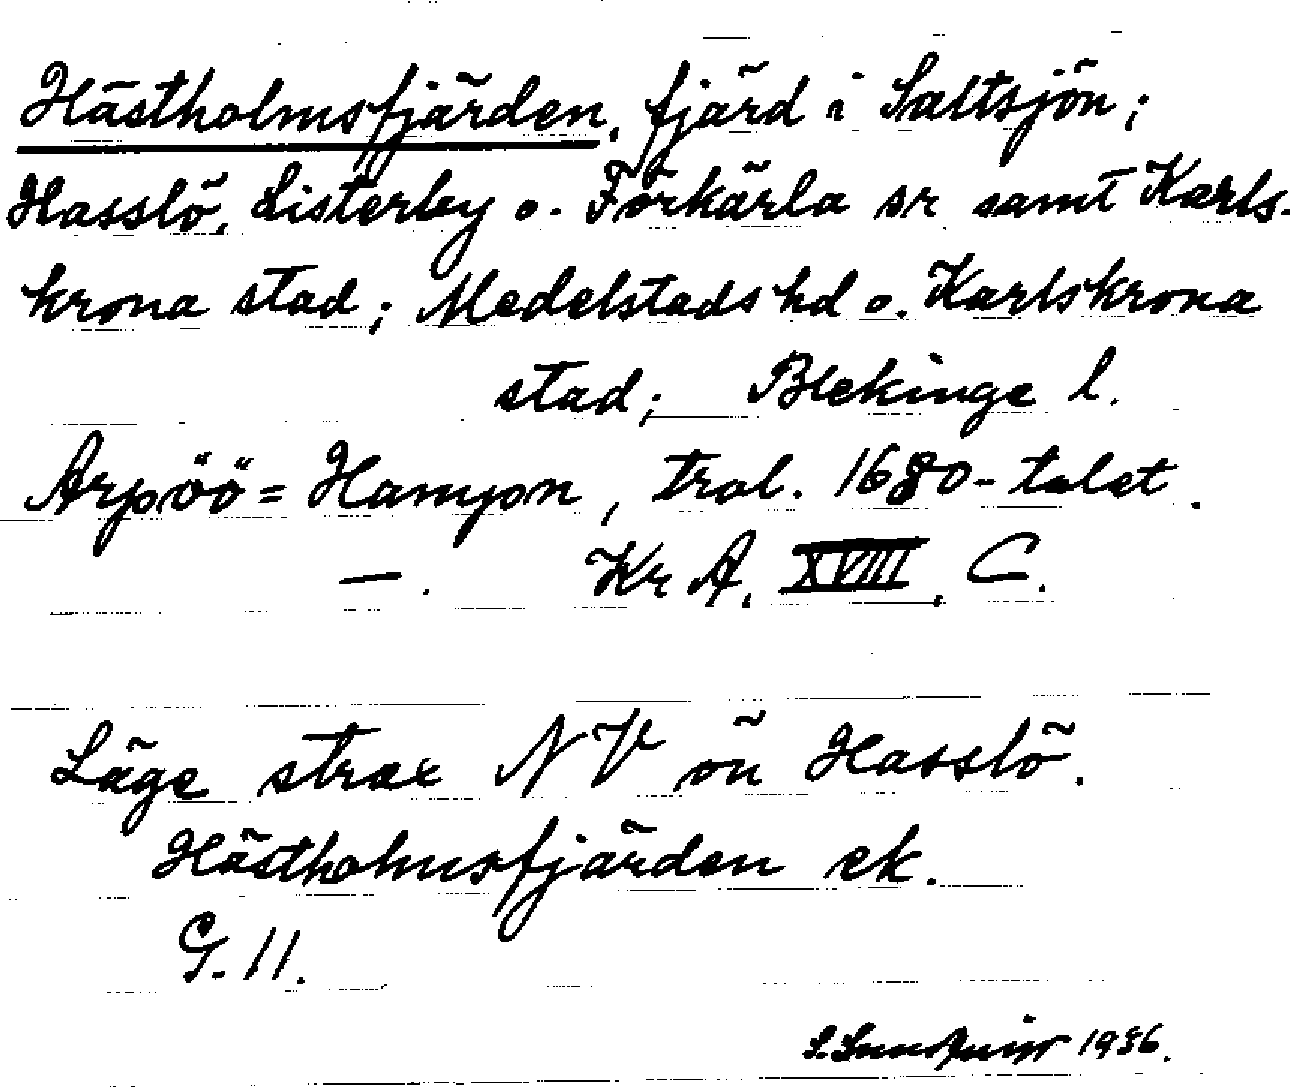 Hästholmsfjärden, fjärd i Saltsjön;
Hasslö, Listerby o. Förkärla sr samt Karls-
krona stad; Medelstads hd o. Karlskrona
stad; Blekinge l.
Arpöö= Hamjon, trol. 1680-talet.
—. Kr A. XVIII. C.
Läge strax NV ön Hasslö.
Hästholmsfjärden ek.
G. 11.
1936.